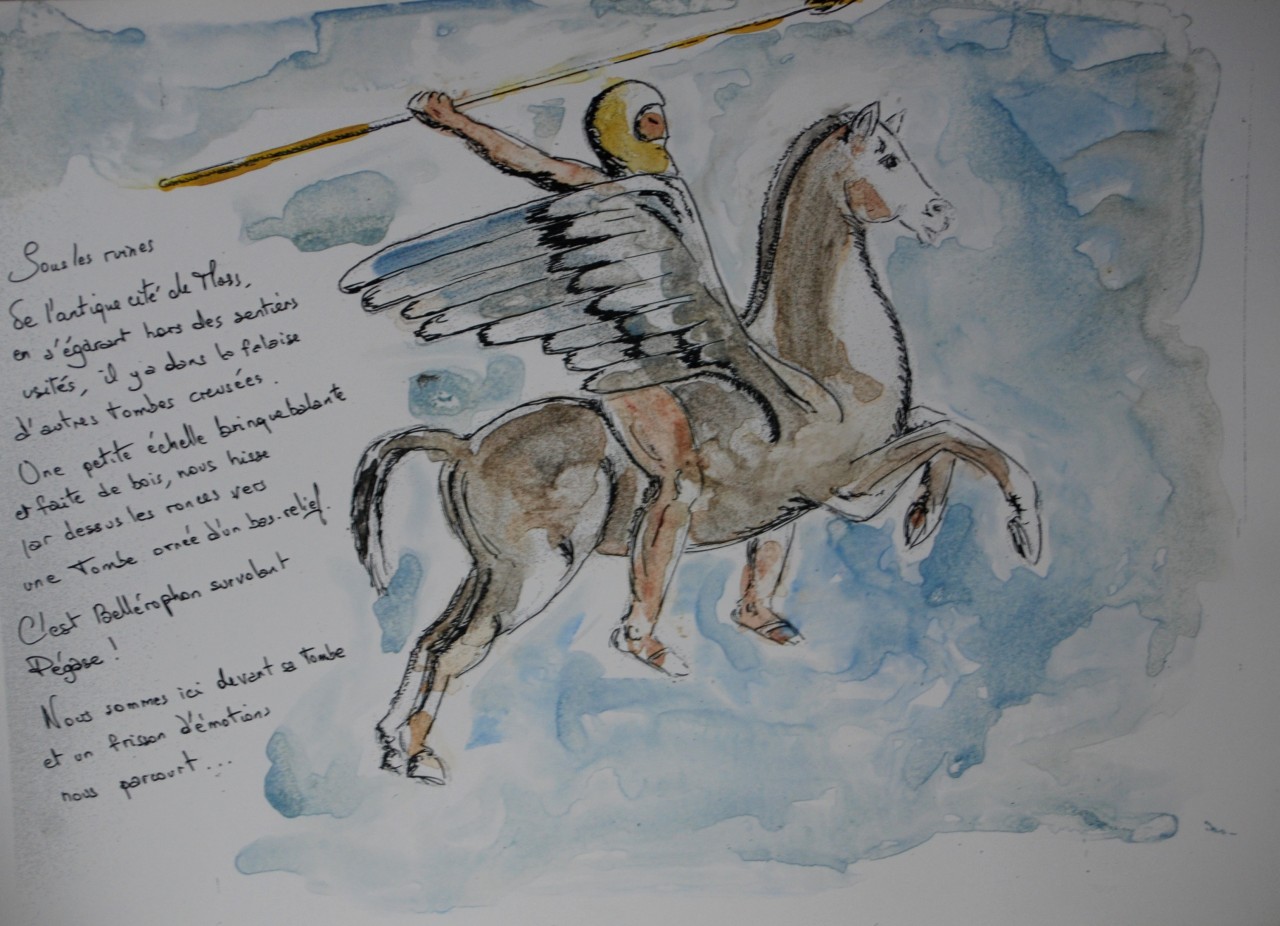 Sous les ruines
de l'antique cité de Tloss,
en s'égarant hors des sentiers
usités, il y a dans la falaise
d'autres tombes creusées.
Une petite échelle brinquebalante
et faite de bois, nous hisse
par dessus les ronces vers
une tombe ornée d'un bas-relief.
C'est Bellérophon survolant
Pégase !
Nous sommes ici devant sa tombe
et un frisson d'émotions
nous parcourt...